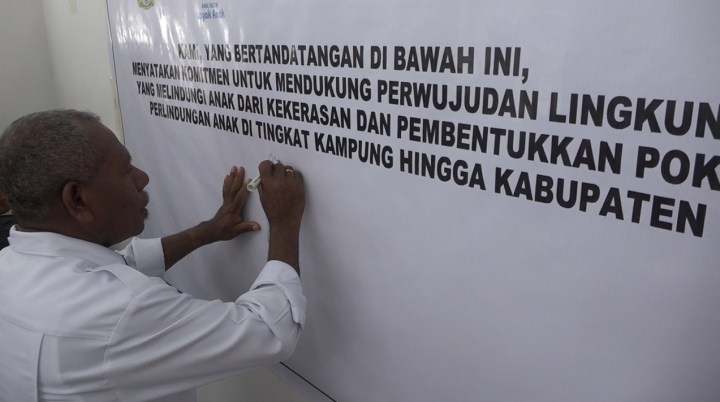 KAMI, YANG BERTANDATANGAN DI BAWAH INI,
MENYATAKAN KOMITMEN UNTUK MENDUKUNG PERWUJUDAN LINGKUN
YANG MELINDUNGI ANAK DARI KEKERASAN DAN PEMBENTUKKAN POK
PERLINDUNGAN ANAK DI TINGKAT KAMPUNG HINGGA KABUPATEN